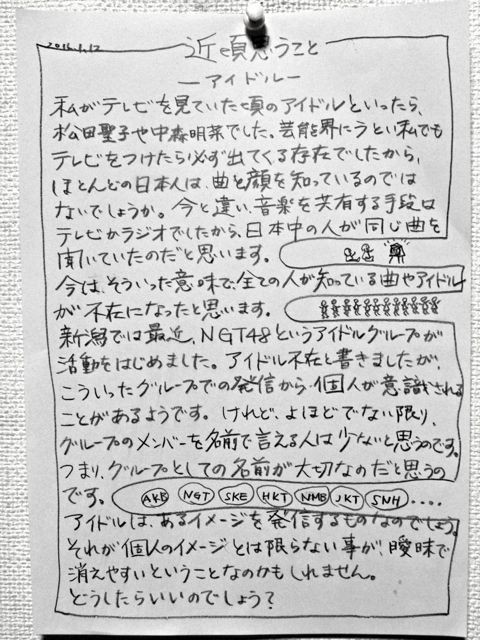 2016.1.12
近頃思うこと
―アイドル―
私がテレビを見ていた頃のアイドルといったら、
松田聖子や中森明菜でした。芸能界にうとい私でも
テレビをつけたら必ず出てくる存在でしたから、
ほとんどの日本人は、曲と顔を知っているのでは
ないでしょうか。今と違い、音楽を共有する手段は
テレビかラジオでしたから、日本中の人が同じ曲を
聞いていたのだと思います。
今は、そういった意味で、全ての人が知っている曲やアイドル
が不在になったと思います。
新潟では最近、NGT48というアイドルグループが
活動をはじめました。アイドル不在と書きましたが、
こういったグループでの発信から、個人が意識される
ことがあるようです。けれど、よほどでない限り、
グループのメンバーを名前で言える人は少ないと思うのです。
つまり、グループとしての名前が大切なのだと思うの
です。 AKB NGT SKE HKT NMB JKT SNH ‥‥
アイドルは、あるイメージを発信するものなのでしょう。
それが個人のイメージとは限らない事が、曖昧で
消えやすいということなのかもしれません。
どうしたらいいのでしょう?